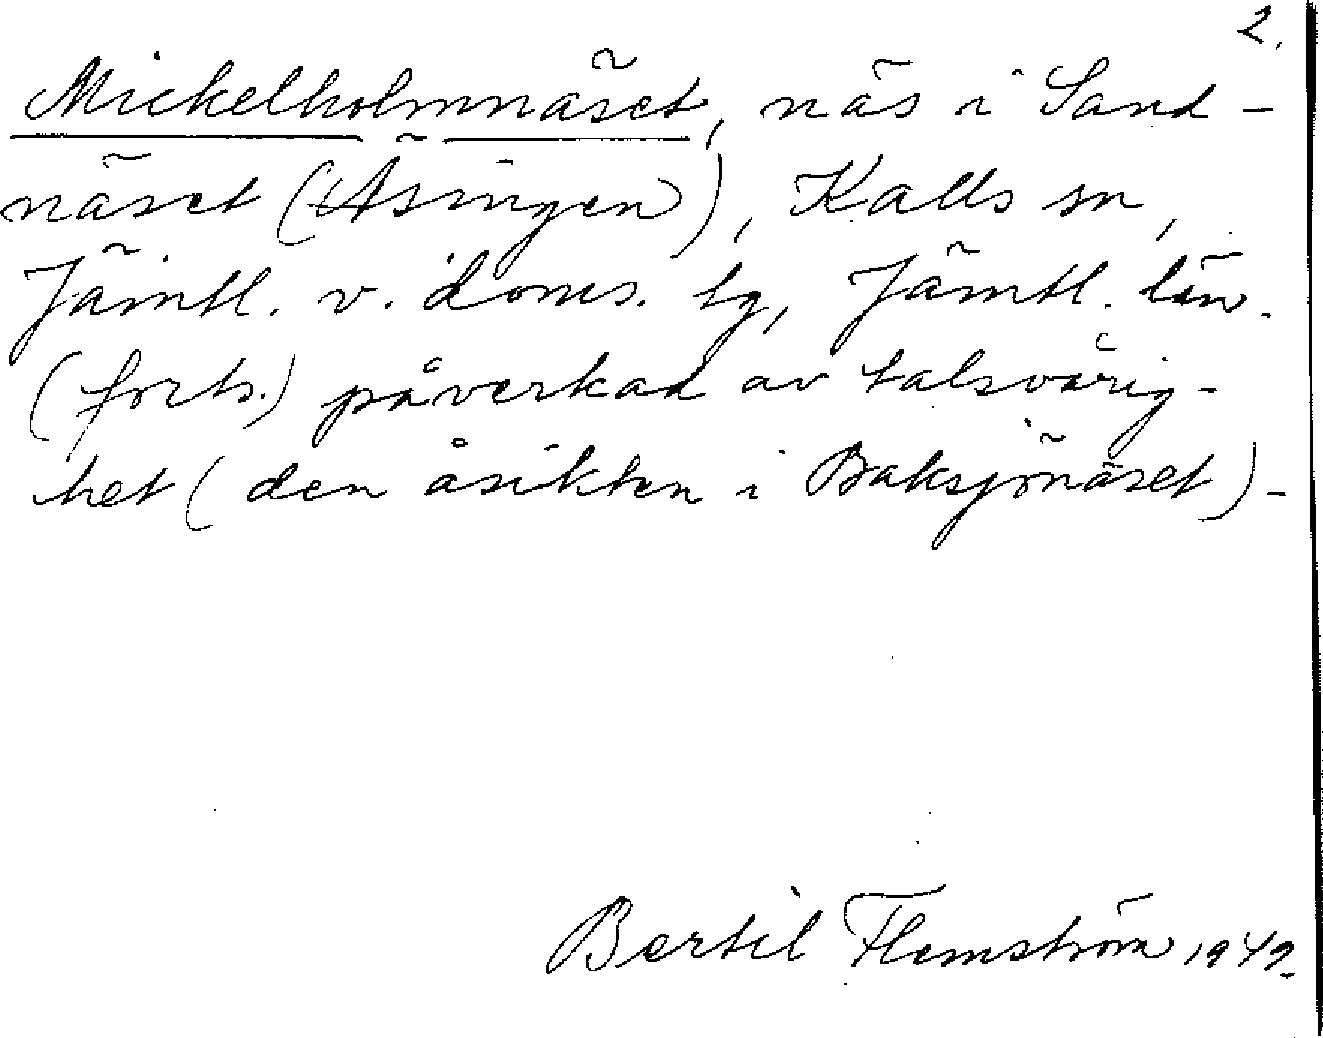 2.
Mickelholmnäset, näs i Sand-
näset (Äsingen), Kalls sn,
Jämtl. v. doms. lg, Jämtl. län.
(forts.) påverkad av talsvårig-
het (den åsikten i Baksjönäset)-
Bertil Flemström 1942